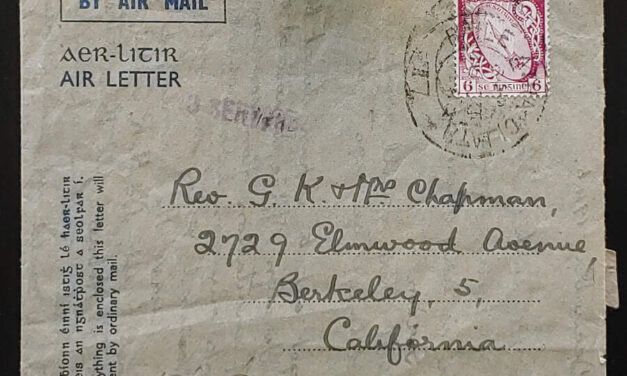 BY AIR MAIL
aer-litir
AIR LETTER
6 se pinginí 6
Rev. G. K. & Mrs Chapman,
2729 Elmwood Avenue,
Berkeley, 5,
California
einní istiġ lé haer-litir
an ngnátpost a seolfar í.
is enclosed this letter will
by ordinary mail.